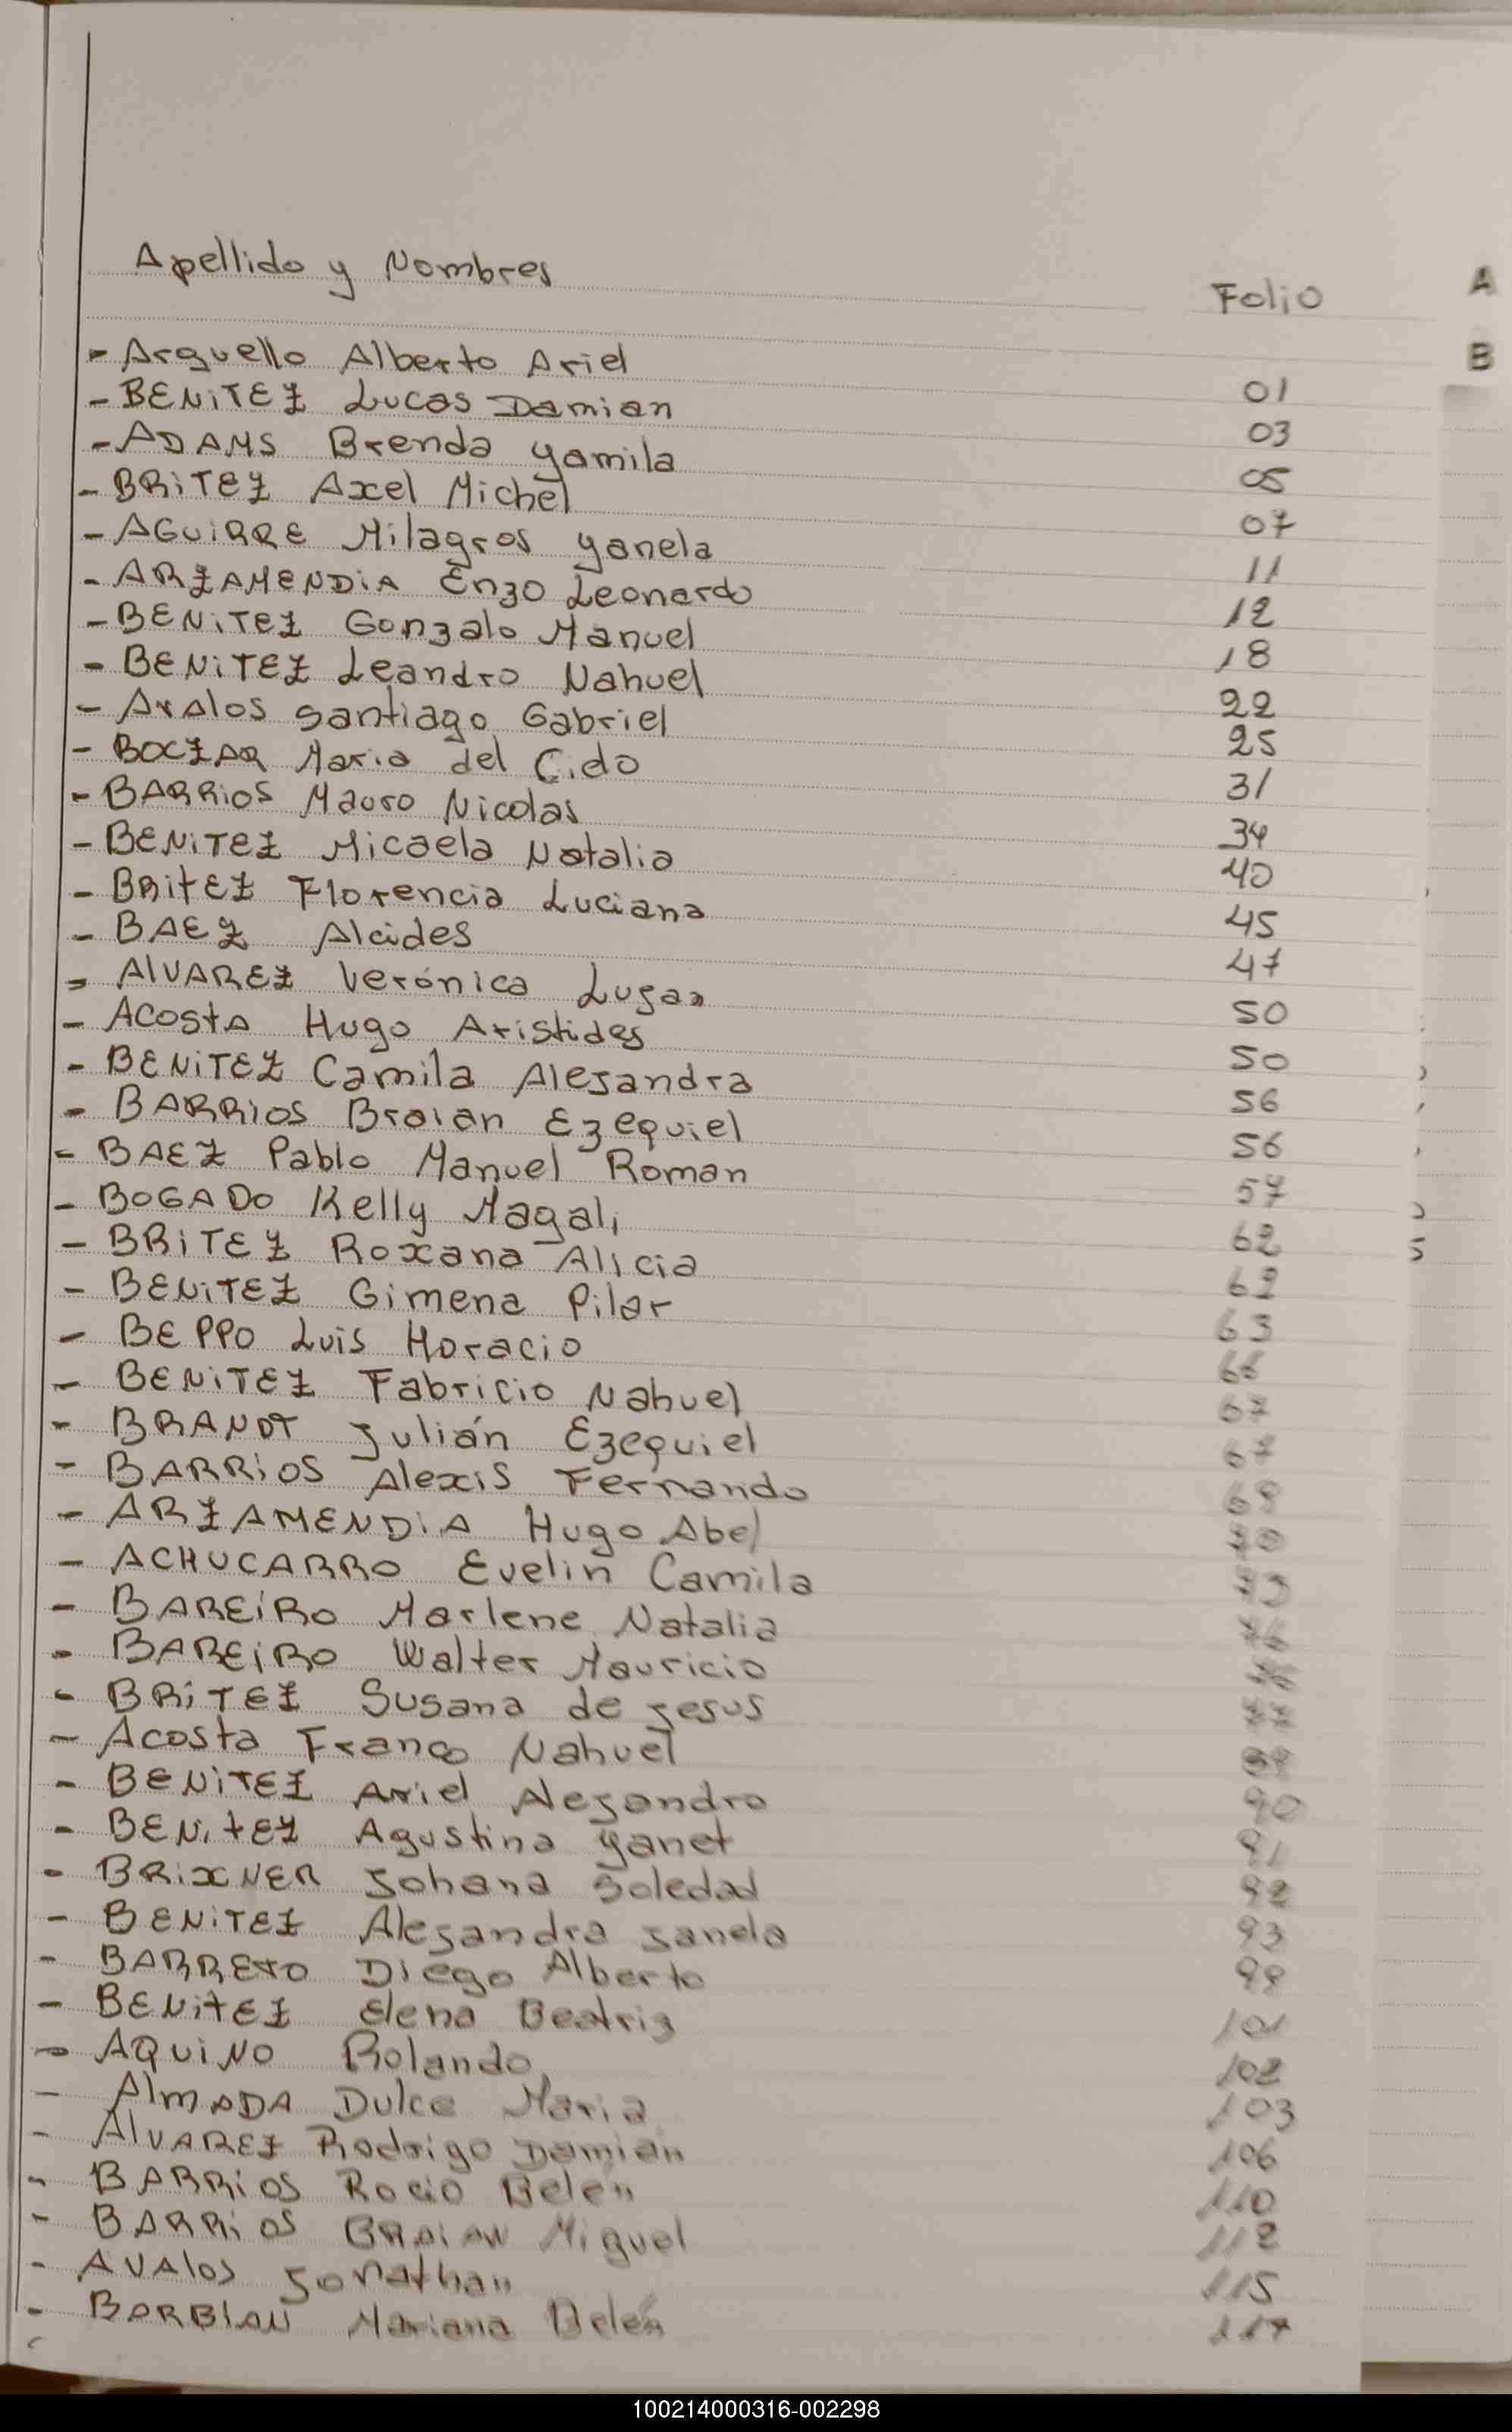 Apellido y Nombres Folio A
B
- Arguello Alberto Ariel 01
- BENITEZ Lucas Damian 03
- ADAMS Brenda yamila 05
- BRITEZ Axel Michel 07
- AGUIRRE Milagros yanela 11
- ARZAMENDIA Enzo Leonardo 12
- BENITEZ Gonzalo Manuel 18
- BENITEZ Leandro Nahuel 22
- Avalos Santiago Gabriel 25
- BOCZAR Maria del C.ido 31
- BARRIOS Mauro Nicolas 34
- BENITEZ Micaela Natalia 40
- BRITEZ Florencia Luciana 45
- BAEZ Alcides 47
- AlVAREZ Verónica Lujan 50
- ACOSTA Hugo Aristides 50
- BENITEZ Camila Alejandra 56
- BARRIOS Braian Ezequiel 56
- BAEZ Pablo Manuel Roman 57
- BOGADO Kelly Magali 62
- BRITEZ Roxana Alicia 62
- BENITEZ Gimena Pilar 63
- BEPPO Luis Horacio 66
- BENITEZ Fabricio Nahuel 67
- BRANDT Julián Ezequiel 67
- BARRIOS Alexis Fernando 69
- ARZAMENDIA Hugo Abel
- ACHUCARRO Evelin Camila 73
- BAREIRO Marlene Natalia 76
- BAREIRO Walter Mauricio 76
- BRITEZ Susana de Jesus 77
- Acosta Franco Nahuel 89
- BENITEZ Ariel Alejandro 90
- BENITEZ Agustina yanet 91
- BRIXNER Johana Soledad 92
- BENITEZ Alejandra Janela 93
- BARRETO Diego Alberto 98
- BENITEZ Elena Beatriz 101
- AQUINO Rolando 102
- AlmADA Dulce Maria 103
- AlVAREZ Rodrigo Damian 106
- BARRIOS Rocio Belén 110
- BARRIOS BRAIAN Miguel 112
- AVAlos Jonathan 115
- BARBIAN Mariana Belén 117
100214000316-002298